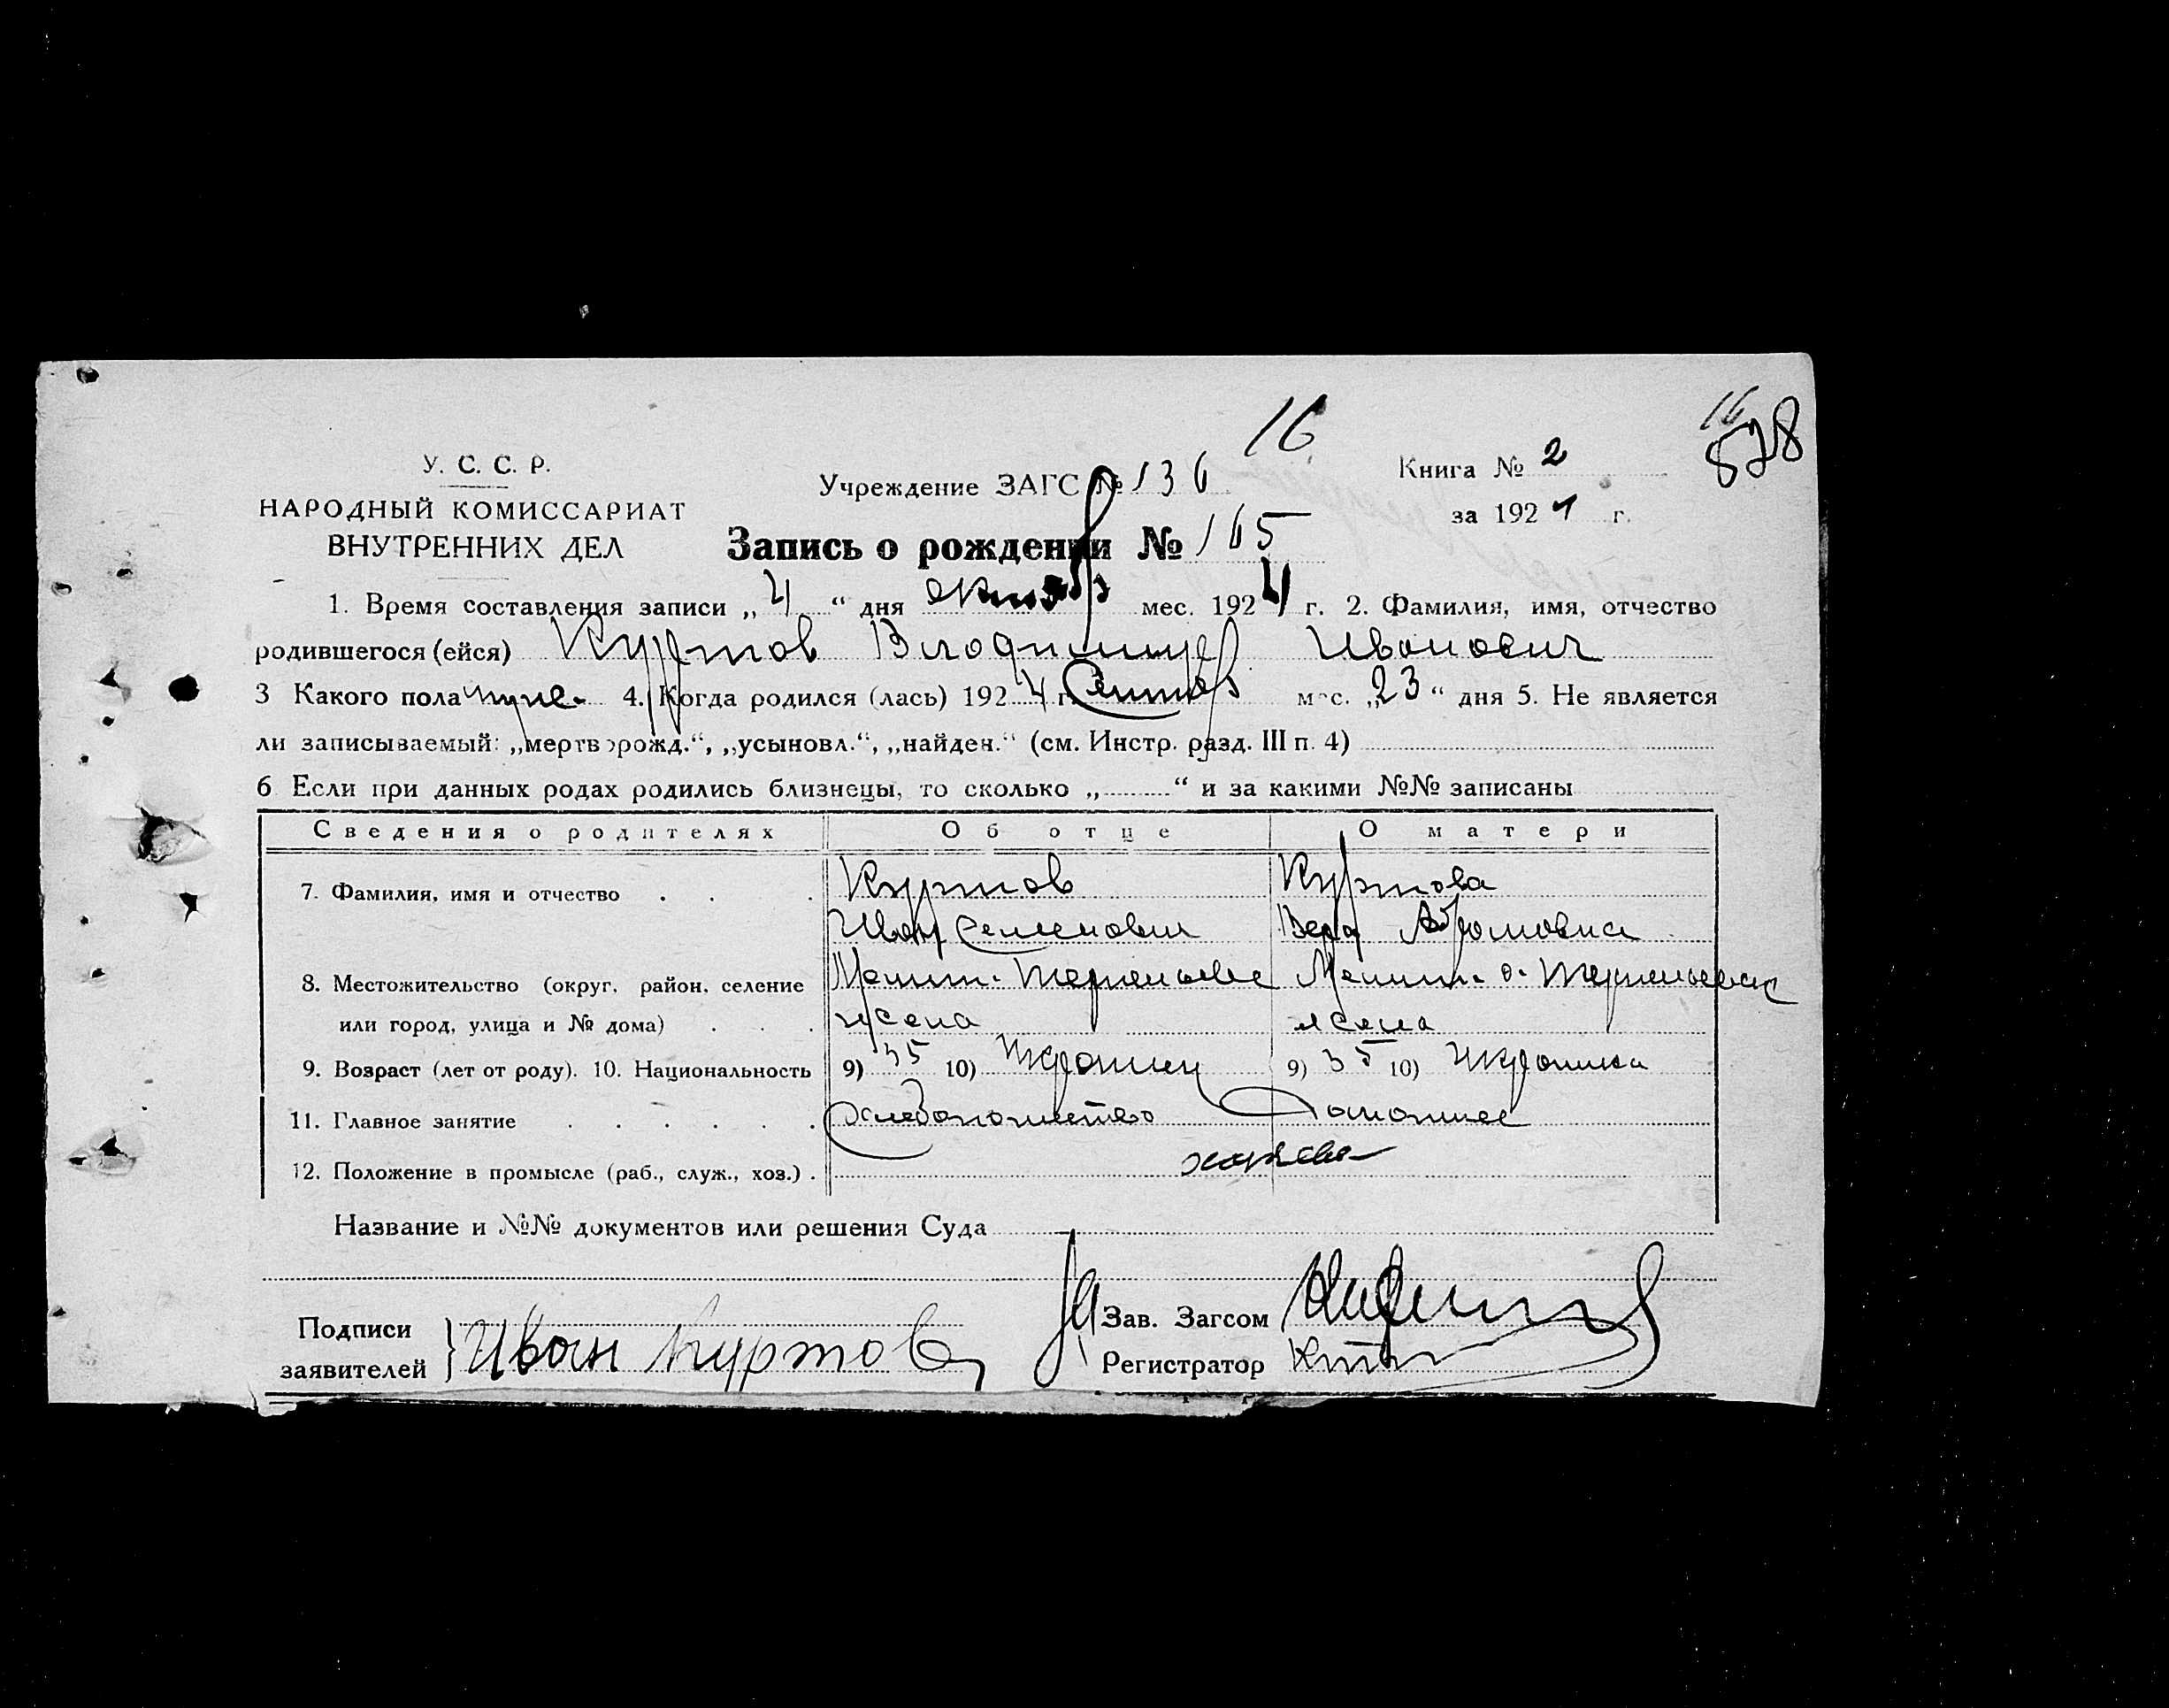 16
16
У. С. С. Р.
Учреждение ЗАГС № 136
Книга № 2
828
НАРОДНЫЙ КОМИССАРИАТ
за 1924 г.
ВНУТРЕННИХ ДЕЛ
Запись о рождении № 165
1. Время составления записи „4“ дня октяб мес. 1924 г. 2. Фамилия, имя, отчество
родившегося (ейся) Куртов Владимир Иванович
3 Какого пола муж. 4. Когда родился (лась) 1924 г. Сентяб мес. „23“ дня 5. Не является
ли записываемый: „мертворожд.“, „усыновл.“, „найден.“ (см. Инстр. разд. III п. 4)
6 Если при данных родах родились близнецы, то сколько „ “ и за какими №№ записаны
Сведения о родителях Об отце О матери
7. Фамилия, имя и отчество . . . Куртов Куртова
Иван Семенович Вера Абрамовна
8. Местожительство (округ, район, селение
или город, улица и № дома) . . .
9. Возраст (лет от роду). 10. Национальность 9) 35 10) Украинец 9) 35 10) Украинка
11. Главное занятие . . . . . . Хлебопашество Домашнее
12. Положение в промысле (раб., служ., хоз.) . хозяева
Название и №№ документов или решения Суда
Подписи
заявителей } Иван Куртов
Зав. Загсом
Регистратор